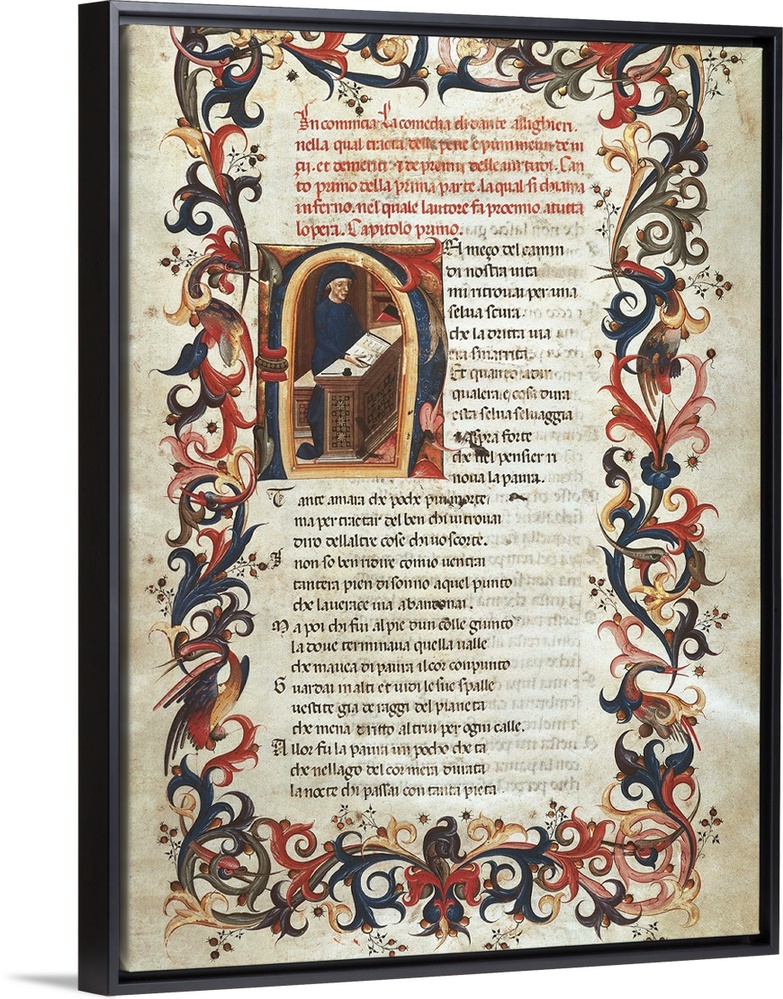 Incomincia La comedia di dante allighieri.
nella qual tracta delle pene e punimenti de ui
çij. et demeriti & de premii delle uirtudi. Can
to primo della prima parte. la qual si chiama
inferno. nel quale lautore fa proemio a tutta
lopera. Capitolo primo.
Nel meço del camin
di nostra uita
mi ritrouai per una
selua scura
che la dritta uia
era smarrita
Et quanto adir
qualera e cosa dura
esta selua seluaggia
aspra forte
che nel pensier ri
noua la paura.
Tante amara che poche piu morte
ma per tractar del ben chi ui trouai
diro dellaltre cose chi uo scorte.
I non so ben ridire comio uentrai
tantera pien di sonno a quel punto
che la uerace uia abandonai.
Ma poi chi fui al pie dun colle giunto
la doue terminaua quella ualle
che mauea di paura il cor conpunto
Guardai in alti et uidi le sue spalle
uestite gia de raggi del pianeta
che mena dritto altrui per ogni calle.
Allor fu la paura un pocho cheta
che nel lago del cor mera durata
la nocte chi passai con tanta pieta